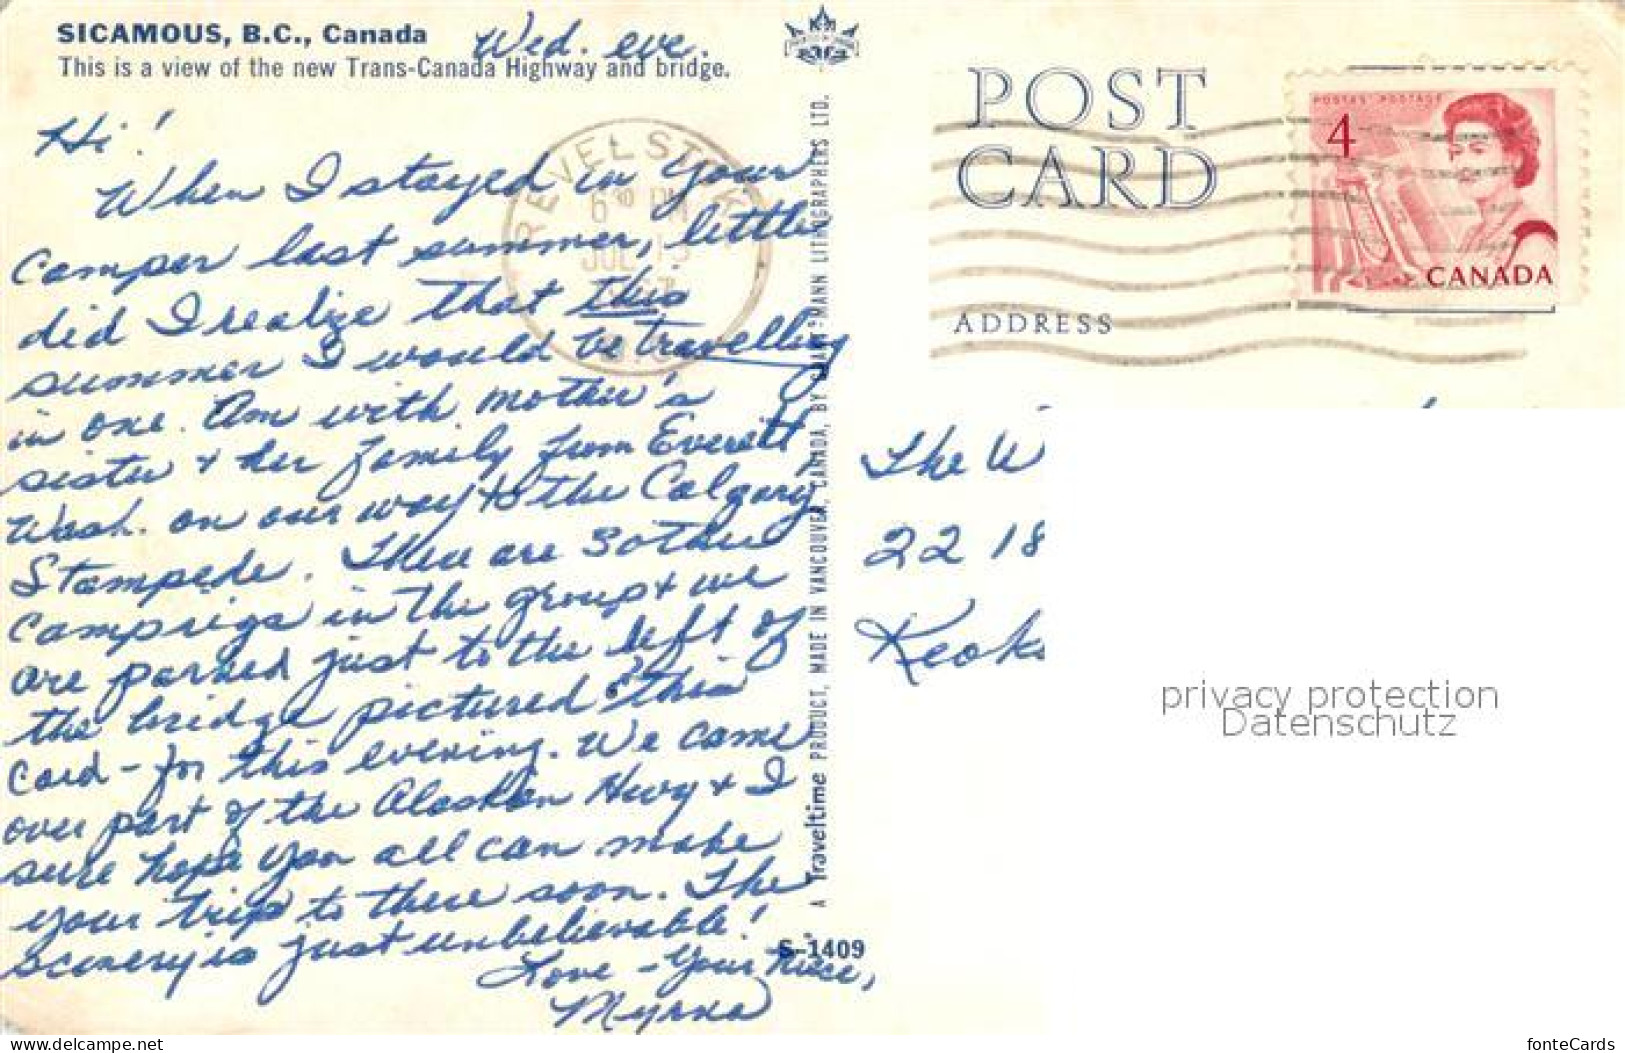 SICAMOUS, B.C., Canada
Wed. eve.
This is a view of the new Trans-Canada Highway and bridge.
Hi!
When I stayed in your
camper last summer, little
did I realize that this
summer I would be travelling
in one. Am with mother's
sister & her family from Everett,
Wash. on our way to the Calgary
Stampede. There are 3 other
camprigs in the group & we
are parked just to the left of
the bridge pictured this
card - for this evening. We came
over part of the Alaskan Hwy & I
sure hope you all can make
your trip to there soon. The
scenery is just unbelievable!
Love - Your niece,
Myrna
REVELSTOKE
PM
JUL
A Traveltime PRODUCT, MADE IN VANCOUVER, CANADA, BY MANN LITHOGRAPHERS LTD.
S-1409
POST
CARD
ADDRESS
POSTES POSTAGE
4
CANADA
The W
22 18
Keok
privacy protection
Datenschutz
www.delcampe.net
fonteCards